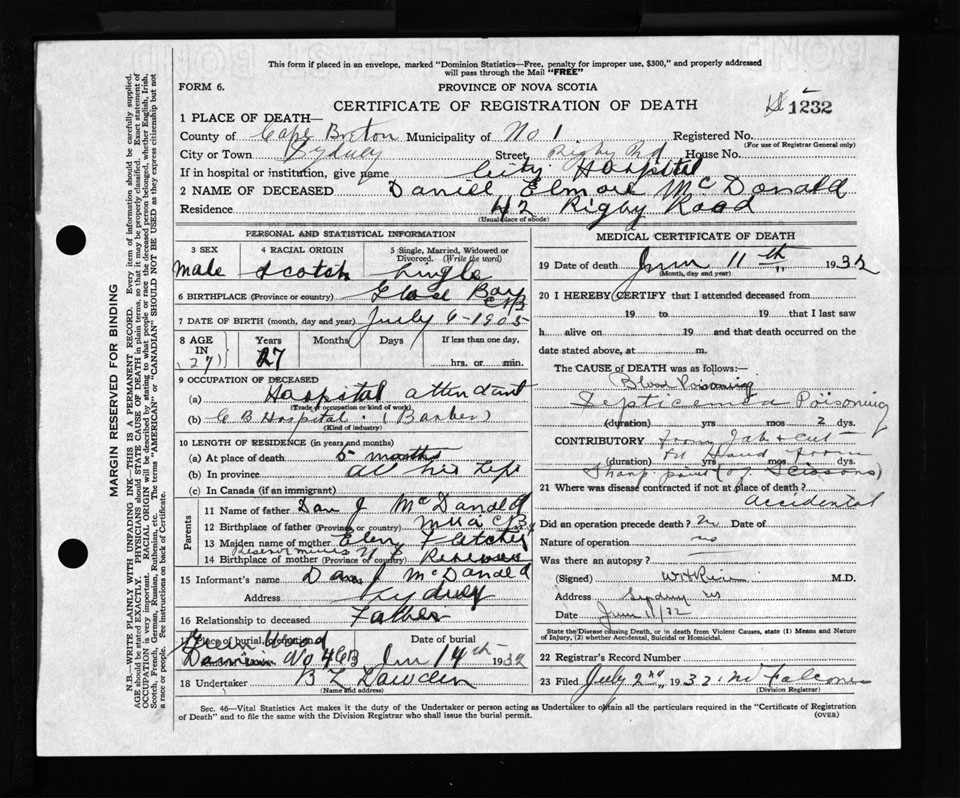 This form if placed in an envelope, marked "Dominion Statistics—Free, penalty for improper use, $300," and properly addressed
will pass through the Mail "FREE"
FORM 6.
PROVINCE OF NOVA SCOTIA
CERTIFICATE OF REGISTRATION OF DEATH
1232
1 PLACE OF DEATH—
County of Cape Breton Municipality of No 1 Registered No.
(For use of Registrar General only)
City or Town Sydney Street Rigby Rd House No.
If in hospital or institution, give name City Hospital
2 NAME OF DECEASED Daniel Elmore McDonald
Residence 42 Rigby Road
(Usual place of abode)
PERSONAL AND STATISTICAL INFORMATION
3 SEX 4 RACIAL ORIGIN 5 Single, Married, Widowed or Divorced. (Write the word)
male Scotch Single
6 BIRTHPLACE (Province or country) Glace Bay CB
7 DATE OF BIRTH (month, day and year) July 6-1905
8 AGE IN (27) Years 27 Months Days If less than one day, hrs. or min.
9 OCCUPATION OF DECEASED
(a) Hospital attendant
(Trade or occupation or kind of work)
(b) CB Hospital (Barber)
(Kind of industry)
10 LENGTH OF RESIDENCE (in years and months)
(a) At place of death 5 months
(b) In province all his life
(c) In Canada (if an immigrant)
Parents
11 Name of father Dan J McDonald
12 Birthplace of father (Province or country) Mira CB
13 Maiden name of mother Fletcher
14 Birthplace of mother (Province or country) Reserve mines
15 Informant's name Dan J McDonald
Address Sydney
16 Relationship to deceased Father
17 Place of burial, Date of burial
Green Wood
Dominion No 4 CB Jun 14th 1932
18 Undertaker B L Dawden
(Name and address)
MEDICAL CERTIFICATE OF DEATH
19 Date of death June 11th 1932
(Month, day and year)
20 I HEREBY CERTIFY that I attended deceased from
19 to 19 that I last saw
h alive on 19 and that death occurred on the
date stated above, at m.
The CAUSE OF DEATH was as follows:—
Blood Poisoning
Septicemia Poisoning
(duration) yrs mos 2 dys.
CONTRIBUTORY from Jab & cut
(duration) yrs mos dys.
in Hand from
Sharp point (of Scissors)
21 Where was disease contracted if not at place of death?
Accidental
Did an operation precede death? No Date of
Nature of operation no
Was there an autopsy?
(Signed) M.D.
Address Sydney NS
Date June 11/32
State the Disease causing Death, or in death from Violent Causes, state (1) Means and Nature of Injury, (2) whether Accidental, Suicidal or Homicidal.
22 Registrar's Record Number
23 Filed July 2nd 1932
(Division Registrar)
Sec. 46—Vital Statistics Act makes it the duty of the Undertaker or person acting as Undertaker to obtain all the particulars required in the "Certificate of Registration
of Death" and to file the same with the Division Registrar who shall issue the burial permit.
(OVER)
MARGIN RESERVED FOR BINDING
N.B.—WRITE PLAINLY WITH UNFADING INK—THIS IS A PERMANENT RECORD. Every item of information should be carefully supplied.
AGE should be stated EXACTLY. PHYSICIANS should state CAUSE OF DEATH in plain terms, so that it may be properly classified. Exact statement of
OCCUPATION is very important. RACIAL ORIGIN will be described by stating to what people or race the deceased person belonged, whether English, Irish,
Scotch, French, German, Russian, Ruthenian, etc. The terms "AMERICAN" or "CANADIAN" SHOULD NOT BE USED as they express citizenship but not
a race or people. See instructions on back of Certificate.